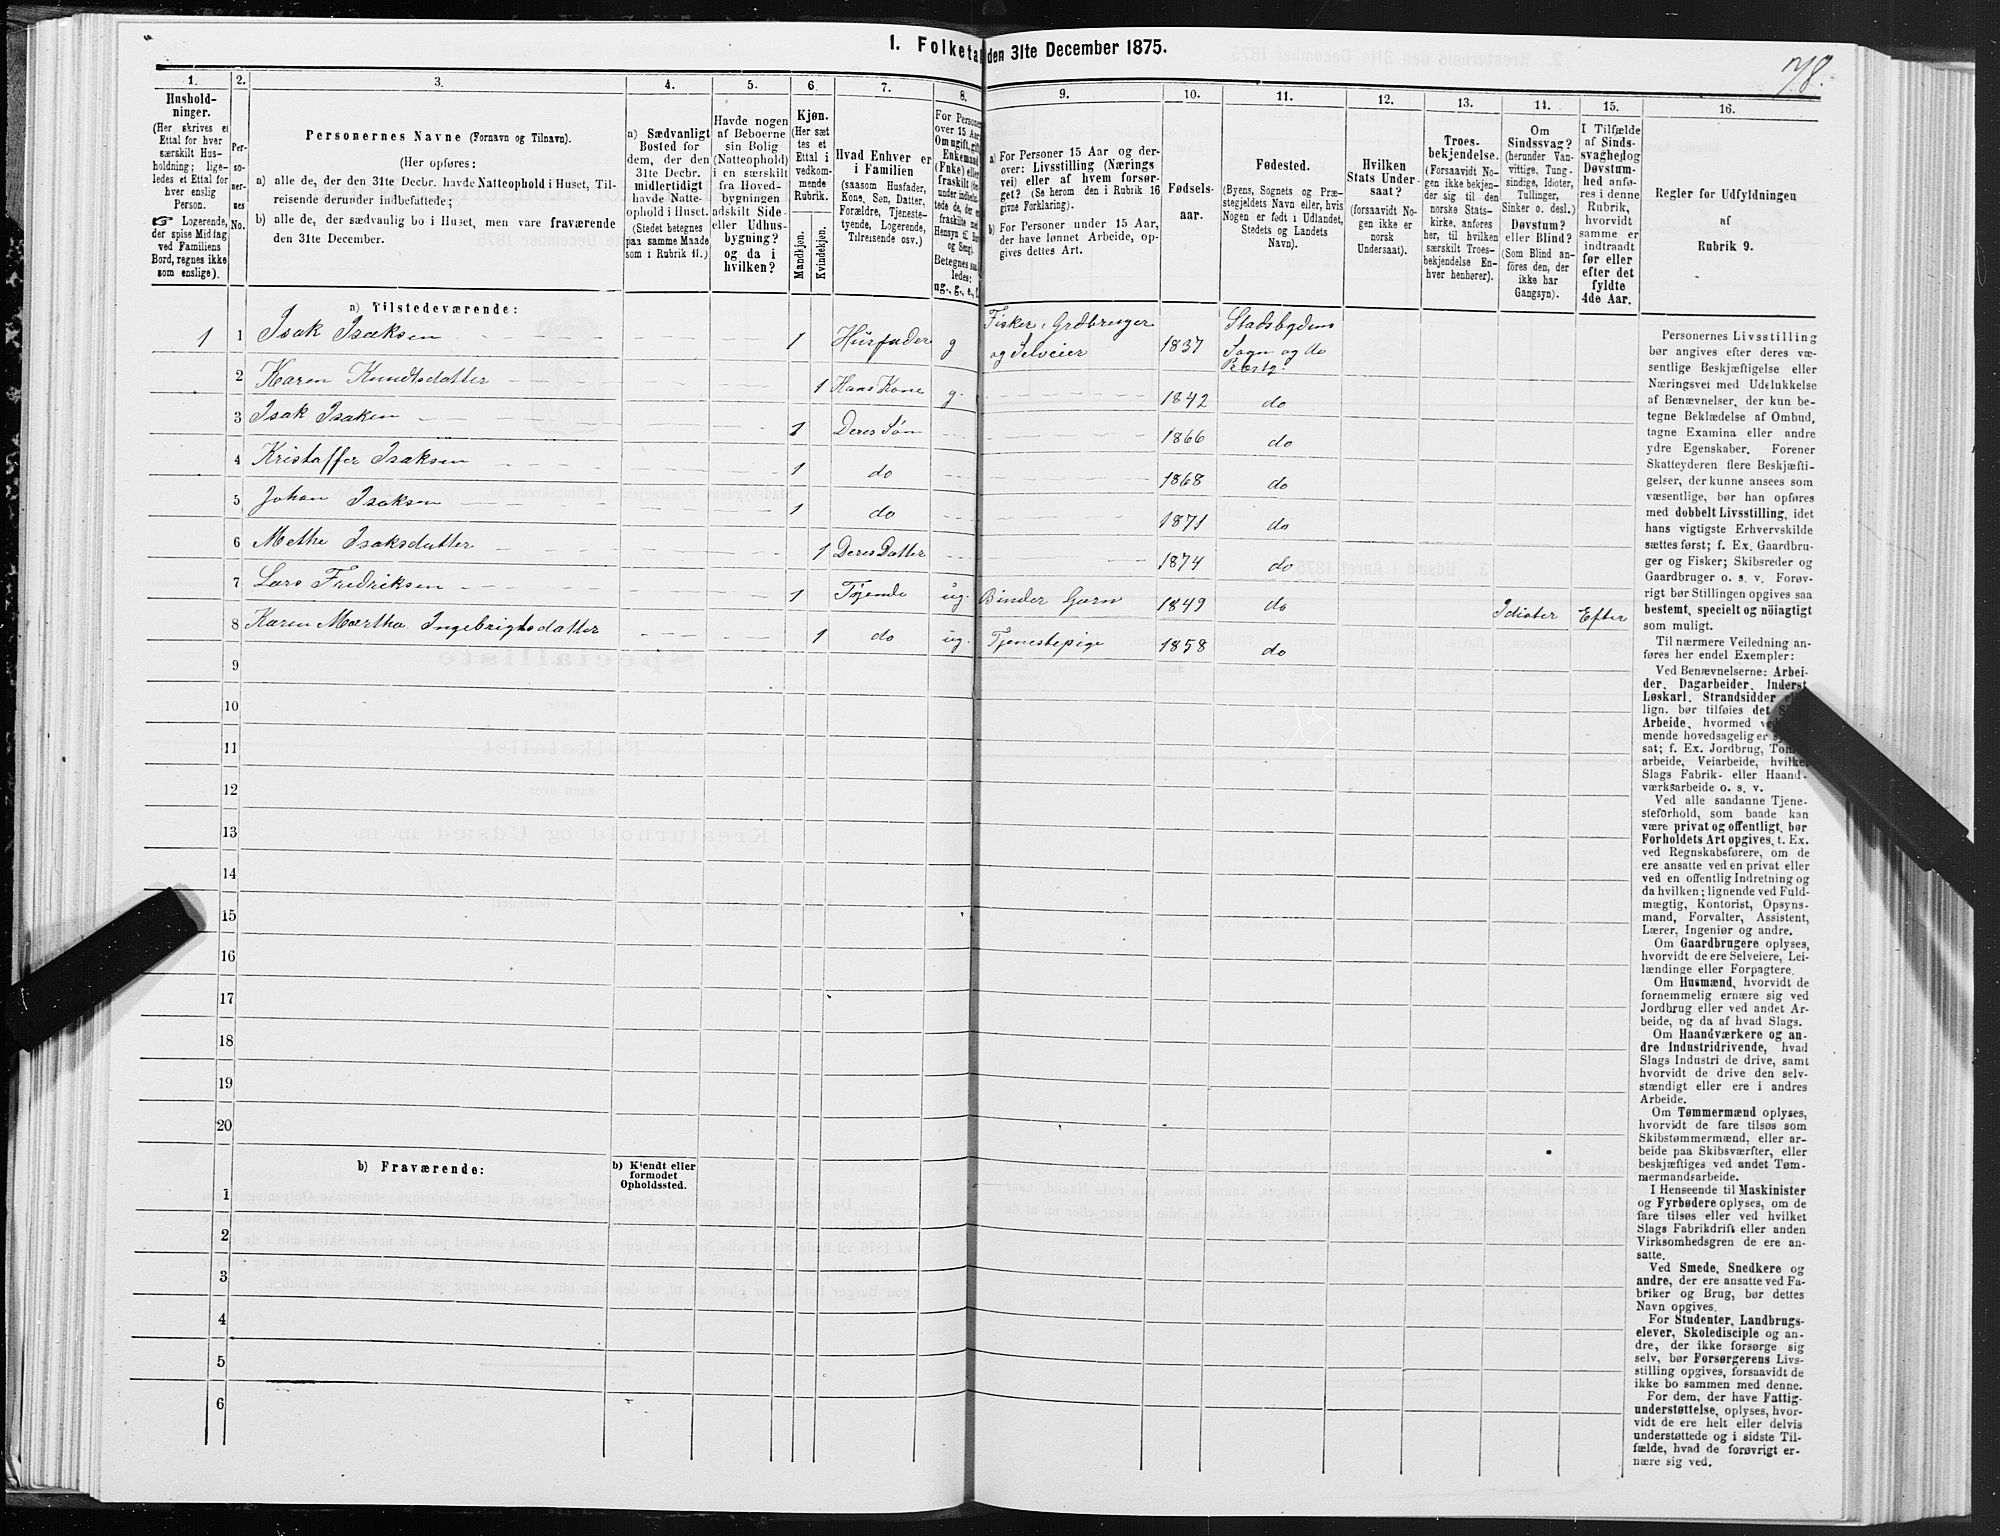 I. Folketal den 31te December 1875.
78.
1. 2. 3. 4. 5. 6. 7. 8. 9. 10. 11. 12. 13. 14. 15. 16.
Hushold-
ninger.
(Her skrives et
Ettal for hver
særskilt Hus-
holdning; lige-
ledes et Ettal for
hver enslig
Person.
☞ Logerende,
der spise Midtag
ved Familiens
Bord, regnes ikke
som enslige).
Per-
so-
ner-
nes
No.
Personernes Navne (Fornavn og Tilnavn).
(Her opføres:
a) alle de, der den 31te Decbr. havde Natteophold i Huset, Til-
reisende derunder indbefattede;
b) alle de, der sædvanlig bo i Huset, men vare fraværende
den 31te December.
a) Sædvanligt
Bosted for
dem, der den
31te Decbr.
midlertidigt
havde Natte-
ophold i Huset.
(Stedet betegnes
paa samme Maade
som i Rubrik 11.)
Havde nogen
af Beboerne
sin Bolig
(Natteophold)
i en særskilt
fra Hoved-
bygningen
adskilt Side-
eller Udhus-
bygning?
og da i
hvilken?
Kjøn.
(Her sæt-
tes et
Ettal i
vedkom-
mende
Rubrik.
Mandkjøn.
Kvindekjøn.
Hvad Enhver er
i Familien
(saasom Husfader,
Kone, Søn, Datter,
Forældre, Tjeneste-
tyende, Logerende,
Tilreisende osv.)
For Personer
over 15 Aar:
Om ugift, gift,
Enkemand
(Enke) eller
fraskilt
Betegnes saa-
ledes:
ug., g., e., f.
a) For Personer 15 Aar og der-
over: Livsstilling (Nærings
vei) eller af hvem forsør-
get? (Se herom den i Rubrik 16
givne Forklaring).
b) For Personer under 15 Aar,
der have lønnet Arbeide, op-
gives dettes Art.
Fødsels-
aar.
Fødested.
(Byens, Sognets og Præ-
stegjeldets Navn eller, hvis
Nogen er født i Udlandet,
Stedets og Landets
Navn).
Hvilken
Stats Under-
saat?
(forsaavidt No-
gen ikke er
norsk
Undersaat).
Troes-
bekjendelse.
(Forsaavidt No-
gen ikke bekjen-
der sig til den
norske Stats-
kirke, anføres
her, til hvilken
særskilt Troes-
bekjendelse En-
hver henhører).
Om
Sindssvag?
(herunder Van-
vittige, Tung-
sindige, Idioter,
Tullinger,
Sinker o. desl.)
Døvstum?
eller Blind?
(Som Blind an-
føres den, der
ikke har
Gangsyn).
I Tilfælde
af Sinds-
svaghed og
Døvstum-
hed anfø-
res i denne
Rubrik,
hvorvidt
samme er
indtraadt
før eller
efter det
fyldte
4de Aar.
Regler for Udfyldningen
af
Rubrik 9.
a) Tilstedeværende:
1 1 Isak Isaksen 1 Husfader g Fisker, Grdbruger og Selveier 1837 Stadsbygdens Sogn og do
2 Karen Knudtsdatter 1 Hans Kone g. 1842 do
3 Isak Isaksen 1 Deres Søn 1866 do
4 Kristaffer Isaksen 1 do 1868 do
5 Johan Isaksen 1 do 1871 do
6 Methe Isaksdatter 1 Deres Datter 1874 do
7 Lars Fredriksen 1 Tjende ug. Binder Garn 1849 do Idioter Efter
8 Karen Martha Ingebrigtsdatter 1 do ug. Tjenestepige 1858 do
9
10
11
12
13
14
15
16
17
18
19
20
b) Fraværende:
b) Kjendt eller
formodet
Opholdssted.
1
2
3
4
5
6
Personernes Livsstilling
bør angives efter deres væ-
sentlige Beskjæftigelse eller
Næringsvei med Udelukkelse
af Benævnelser, der kun be-
tegne Beklædelse af Ombud,
tagne Examina eller andre
ydre Egenskaber. Forener
Skatteyderen flere Beskjæfti-
gelser, der kunne ansees som
væsentlige, bør han opføres
med dobbelt Livsstilling, idet
hans vigtigste Erhvervskilde
sættes først; f. Ex. Gaardbru-
ger og Fisker; Skibsreder og
Gaardbruger o. s. v. Forøv-
rigt bør Stillingen opgives saa
bestemt, specielt og nöiagtigt
som muligt.
Til nærmere Veiledning an-
føres her endel Exempler:
Ved Benævnelserne: Arbei-
der, Dagarbeider, Inderst,
Løskarl, Strandsidder
lign. bør tilføies det
Arbeide, hvormed
mende hovedsagelig er
sat; f. Ex. Jordbrug,
arbeide, Veiarbeide, hvilket
Slags Fabrik- eller Haand-
værksarbeide o. s. v.
Ved alle saadanne Tjene-
steforhold, som baade kan
være privat og offentligt, bør
Forholdets Art opgives, t. Ex.
ved Regnskabsførere, om de
ere ansatte ved en privat eller
ved en offentlig Indretning og
da hvilken; lignende ved Fuld-
mægtig, Kontorist, Opsyns-
mand, Forvalter, Assistent,
Lærer, Ingeniør og andre.
Om Gaardbrugere oplyses,
hvorvidt de ere Selveiere, Lei-
lændinge eller Forpagtere.
Om Husmænd, hvorvidt de
fornemmelig ernære sig ved
Jordbrug eller ved andet Ar-
beide, og da af hvad Slags.
Om Haandværkere og an-
dre Industridrivende, hvad
Slags Industri de drive, samt
hvorvidt de drive den selv-
stændigt eller ere i andres
Arbeide.
Om Tømmermænd oplyses,
hvorvidt de fare tilsøs som
Skibstømmermænd, eller ar-
beide paa Skibsværfter, eller
beskjæftiges ved andet Tøm-
mermandsarbeide.
I Henseende til Maskinister
og Fyrbødere oplyses, om de
fare tilsøs eller ved hvilket
Slags Fabrikdrift eller anden
Virksomhedsgren de ere an-
satte.
Ved Smede, Snedkere og
andre, der ere ansatte ved Fa-
briker og Brug, bør dettes
Navn opgives.
For Studenter, Landbrugs-
elever, Skoledisciple og an-
dre, der ikke forsørge sig
selv, bør Forsørgerens Livs-
stilling opgives, forsaavidt de
ikke bo sammen med denne.
For dem, der have Fattig-
understøttelse, oplyses, hvor-
vidt de ere helt eller delvis
understøttede og i sidste Til-
fælde, hvad de forøvrigt er-
nære sig ved.